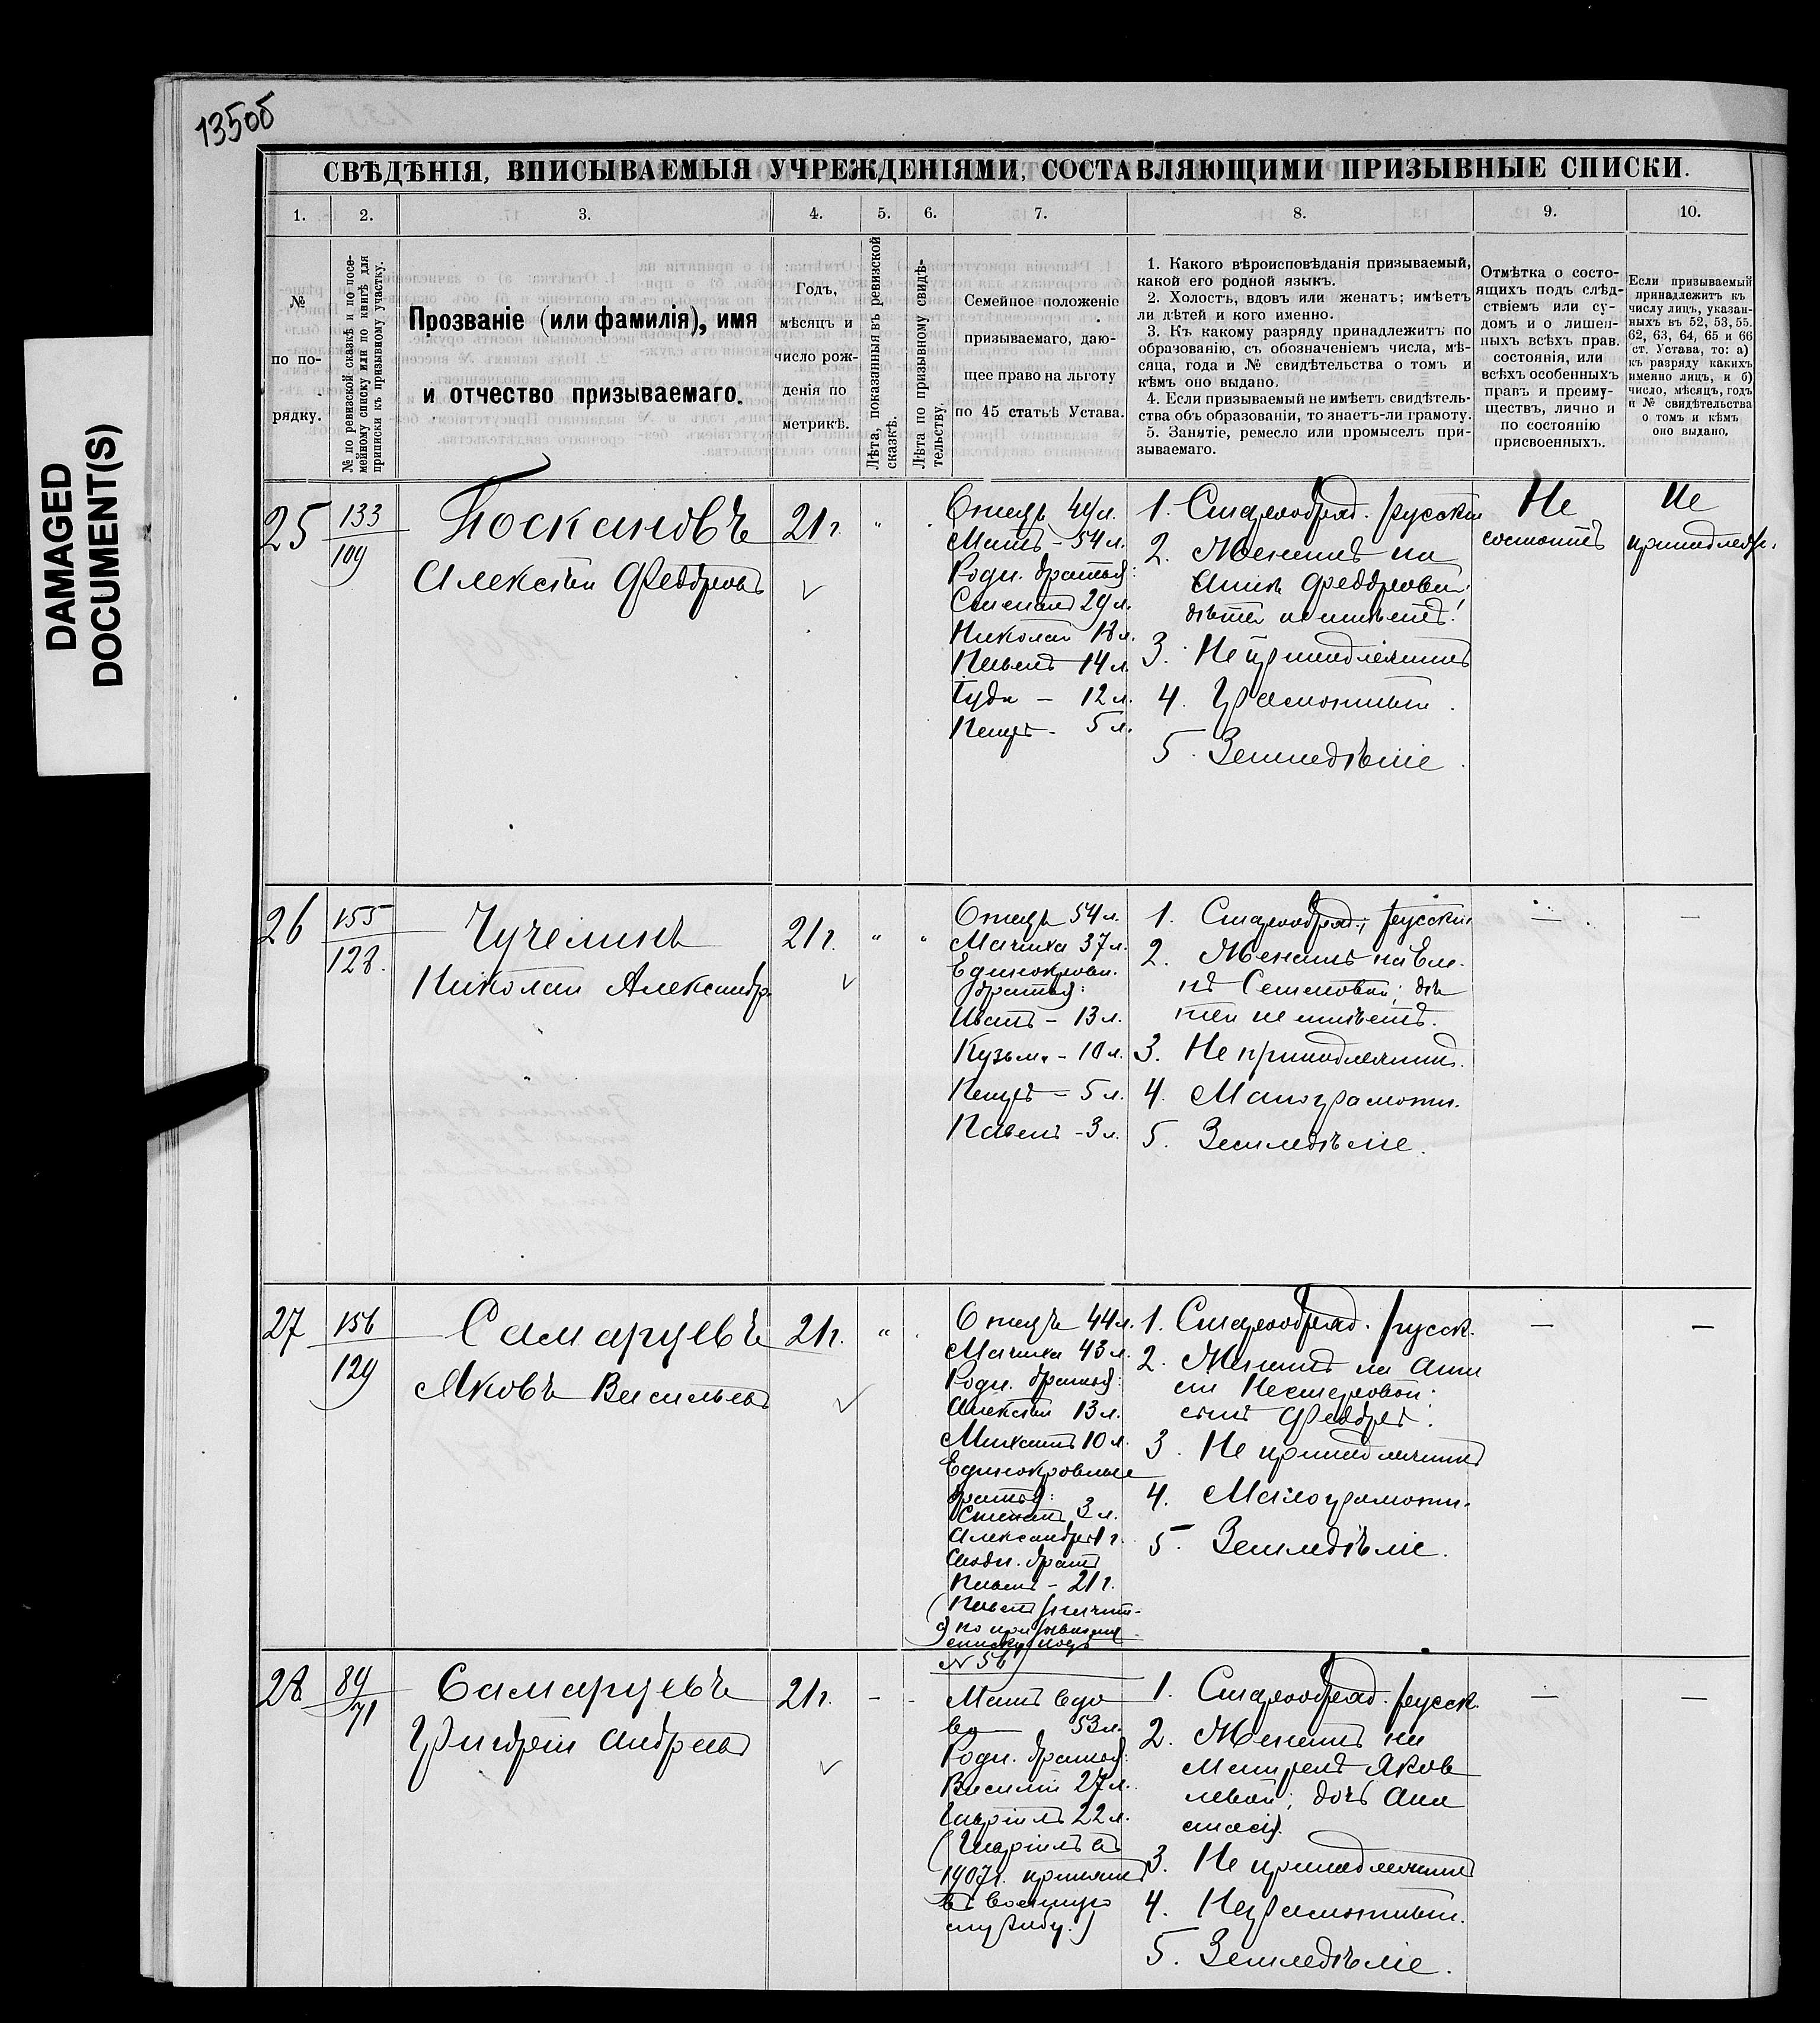 135об
DAMAGED
DOCUMENT(S)
СВѢДѢНІЯ, ВПИСЫВАЕМЫЯ УЧРЕЖДЕНІЯМИ, СОСТАВЛЯЮЩИМИ ПРИЗЫВНЫЕ СПИСКИ.
1. 2. 3. 4. 5. 6. 7. 8. 9. 10.
№
по по-
рядку.
№ по ревизской сказкѣ и по посе-
мейному списку или по книгѣ для
приписки къ призывному участку.
Прозваніе (или фамилія), имя
и отчество призываемаго.
Годъ,
мѣсяцъ и
число рож-
денія по
метрикѣ.
Лѣта, показанныя въ ревизской
сказкѣ.
Лѣта по призывному свидѣ-
тельству.
Семейное положеніе
призываемаго, даю-
щее право на льготу
по 45 статьѣ Устава.
1. Какого вѣроисповѣданія призываемый,
какой его родной языкъ.
2. Холостъ, вдовъ или женатъ; имѣетъ
ли дѣтей и кого именно.
3. Къ какому разряду принадлежитъ по
образованію, съ обозначеніемъ числа, мѣ-
сяца, года и № свидѣтельства о томъ и
кѣмъ оно выдано.
4. Если призываемый не имѣетъ свидѣтель-
ства объ образованіи, то знаетъ-ли грамоту.
5. Занятіе, ремесло или промыселъ при-
зываемаго.
Отмѣтка о состо-
ящихъ подъ слѣд-
ствіемъ или су-
домъ и о лишен-
ныхъ всѣхъ прав.
состоянія, или
всѣхъ особенныхъ
правъ и преиму-
ществъ, лично и
по состоянію
присвоенныхъ.
Если призываемый
принадлежитъ къ
числу лицъ, указан-
ныхъ въ 52, 53, 55.
62, 63, 64, 65 и 66
ст. Устава, то: а)
къ разряду какихъ
именно лицъ, и б)
число, мѣсяцъ, годъ
и № свидѣтельства
о томъ и кѣмъ
оно выдано,
25
133
109
Поскановъ
Алексѣй Ѳеодоровъ
21г.
Отецъ 44л.
Мать – 54л.
Родн. братья:
Степанъ 29л.
Николай 18л.
Павелъ 14л.
Іуда – 12л.
Петръ – 5л.
1. Старообряд. русскій
2. Женатъ на
Аннѣ Ѳеодоровой;
дѣтей не имѣетъ.
3. Не принадлежитъ
4. Грамотный.
5. Земледѣліе.
Не
состоитъ
Не
принадлеж.
26
155
128.
Чучелинъ
Николай Александр.
21г. " "
Отецъ 54л.
Мачиха 37л.
Единокровн.
братья:
Иванъ – 13л.
Кузьма – 10л.
Петръ – 5л.
Павелъ – 3л.
1. Старообряд.; русскій
2. Женатъ на Еле.
нѣ Семеновой; дѣ
тей не имѣетъ.
3. Не принадлежитъ.
4. Малограмотн.
5. Земледѣліе.
—
—
27
156
129
Самаруевъ
Яковъ Васильевъ
21г. "
Отецъ 44л.
Мачиха 43л.
Родн. братья:
Алексѣй 13л.
Михаилъ 10л.
Единокровные
братья:
Степанъ 3л.
Александръ 1г.
братъ
Павелъ – 21г.
(Павелъ
по призывному
списку подъ
№ 56)
1. Старообряд. русск.
2. Женатъ на Анны
Нестеровой;
сынъ Ѳеодоръ.
3. Не принадлежитъ
4. Малограмотн.
5. Земледѣліе.
—
—
28
89
71
Самаруевъ
Григорій Андреевъ
21г. – –
Мать вдо
ва 53л.
Родн. братья:
Василій 27л.
Гавріилъ 22л.
(Гавріилъ въ
1907г. принятъ
въ военную
службу.)
1. Старообряд. русск.
2. Женатъ на
Матренѣ Яков
левой; дочь Ана
стасія.
3. Не принадлежитъ
4. Неграмотный.
5. Земледѣліе.
—
—